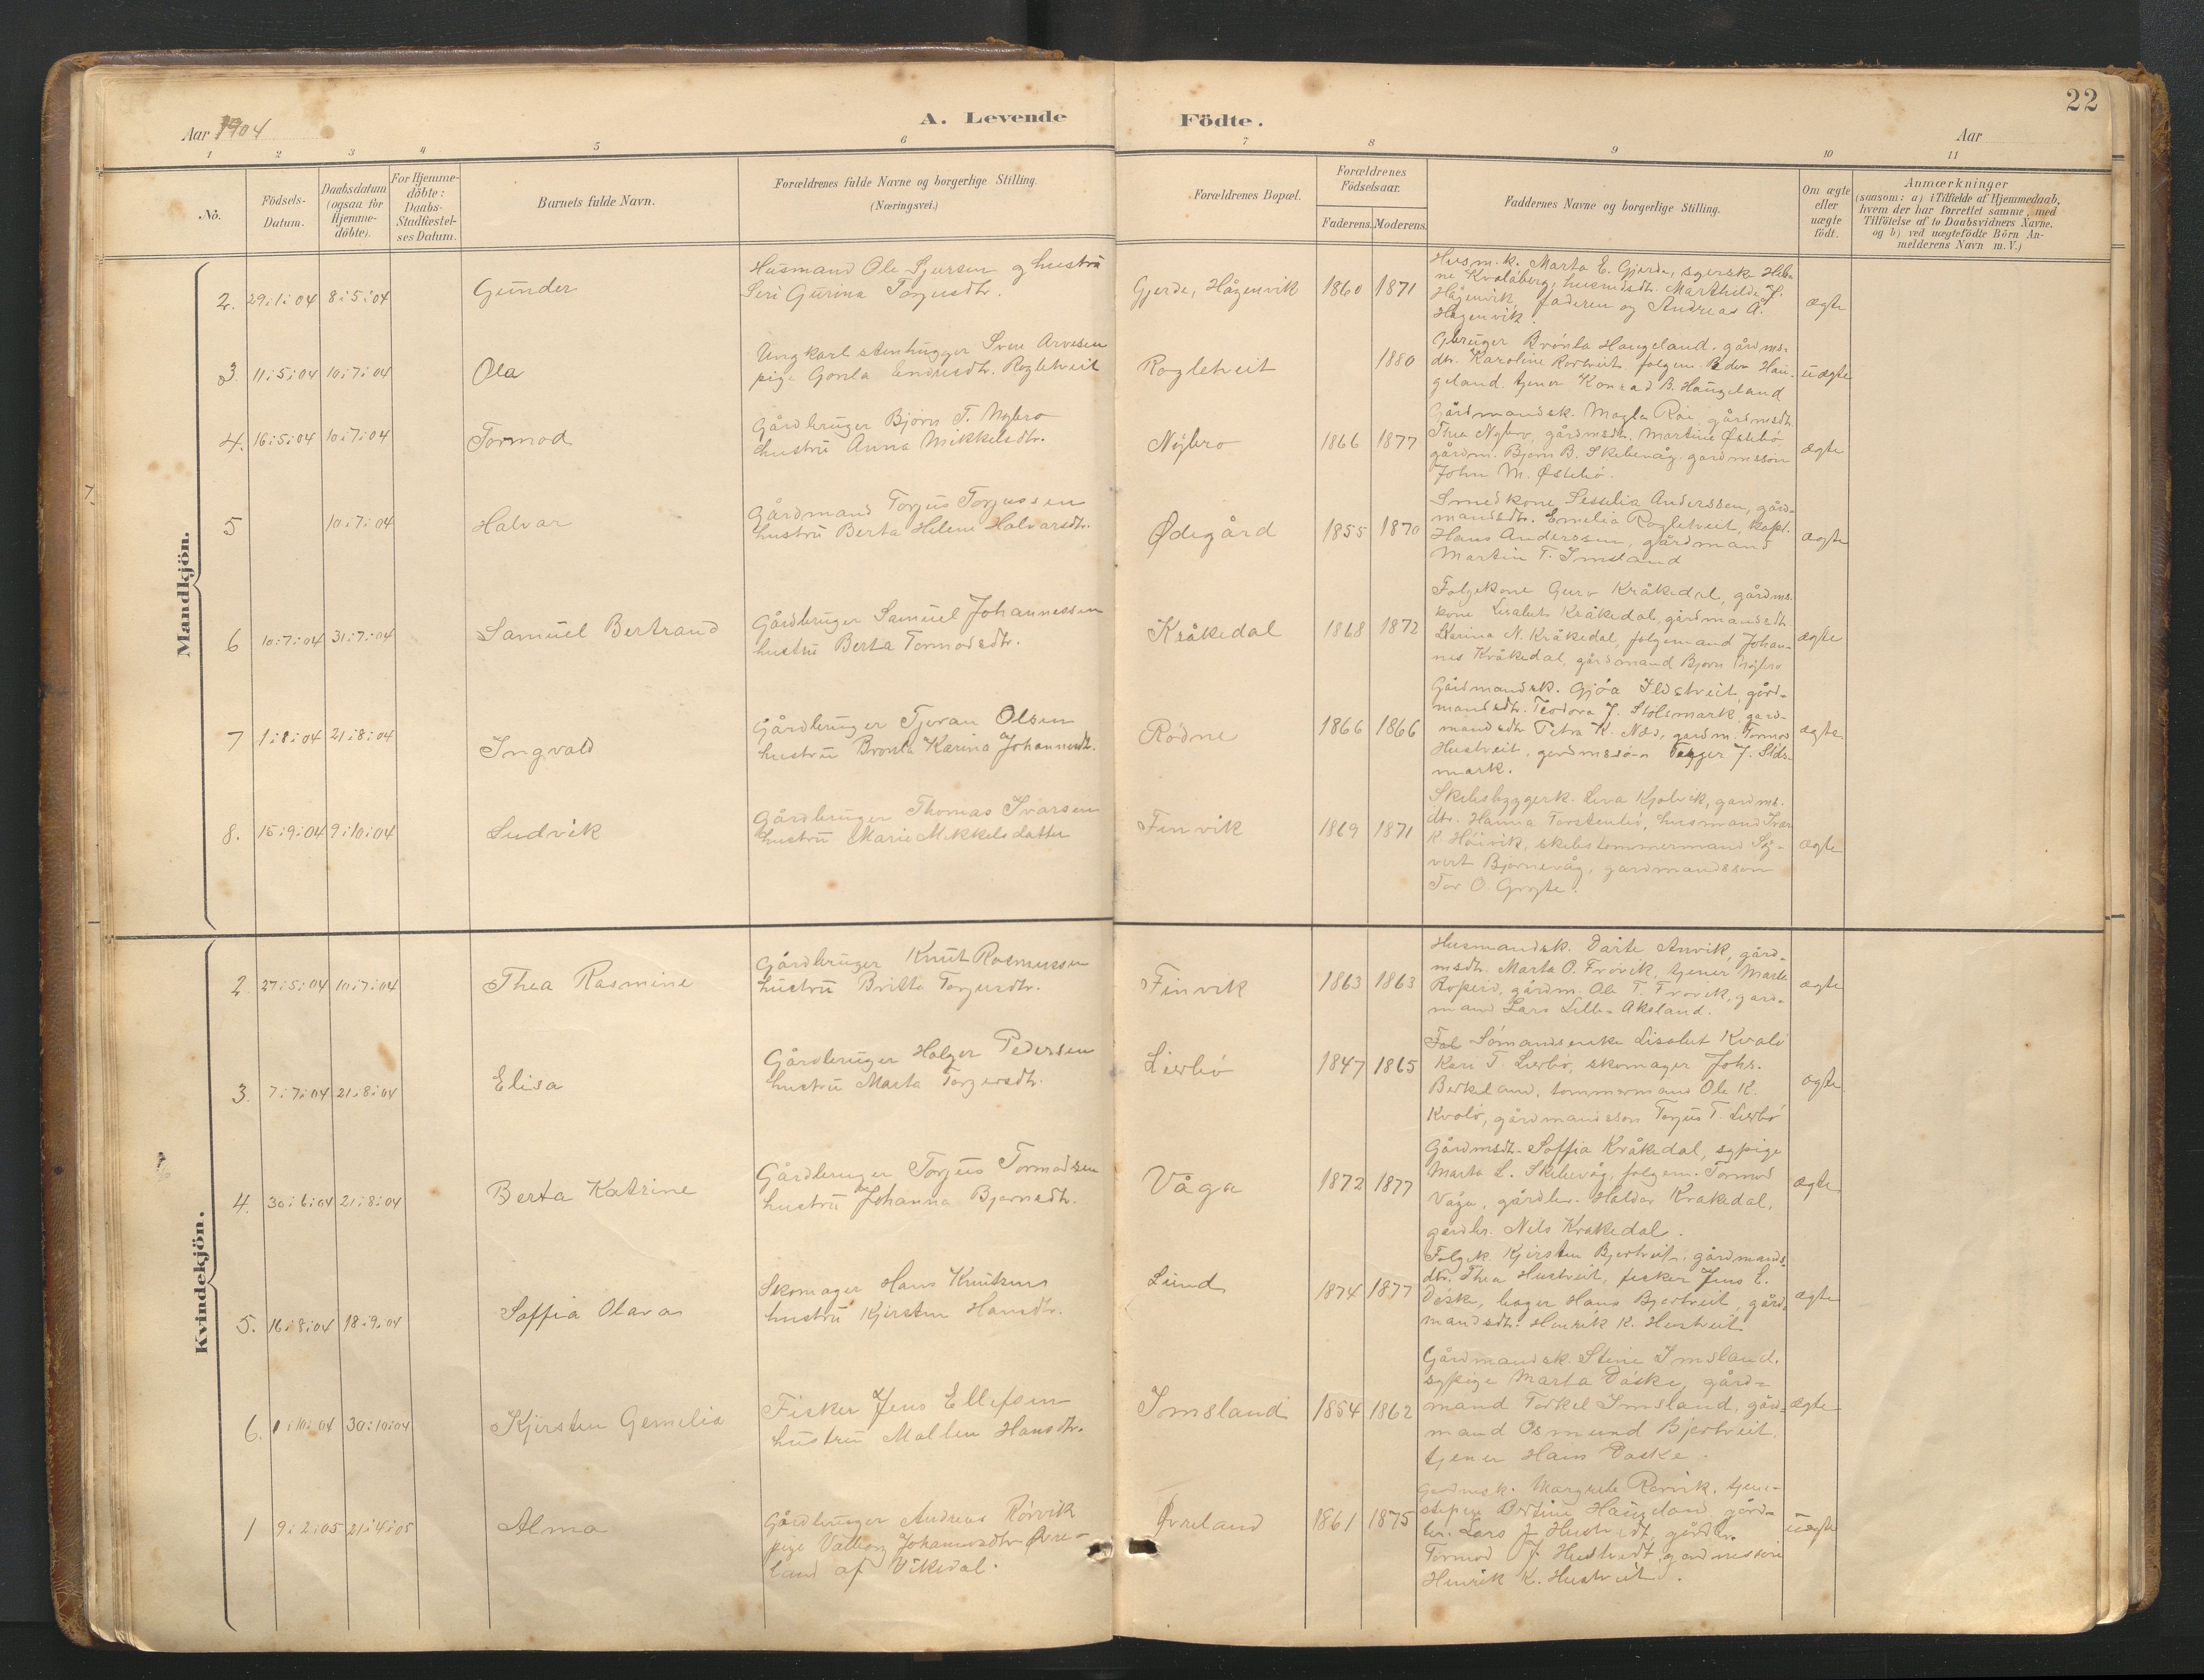 22
Aar 1904
A. Levende
Födte.
Aar
1 2 3 4 5 6 7 8 9 10 11
No.
Födsels-
Datum.
Daabsdatum
(ogsaa for
Hjemme-
döbte).
For Hjemme-
döbte:
Daabs-
Stadfæstel-
ses Datum.
Barnets fulde Navn.
Forældrenes fulde Navne og borgerlige Stilling.
(Næringsvei.)
Forældrenes Bopæl.
Forældrenes
Födselsaar.
Faderens. Moderens.
Faddernes Navne og borgerlige Stilling.
Om ægte
eller
uægte
født.
Anmærkninger
(saasom: a) i Tilfælde af Hjemmedaab,
hvem der har forrettet samme, med
Tilføielse af to Daabsvidners Navne.
og b) ved uægtefødte Börn An-
melderens Navn m.V.)
Mandkjön.
2. 29:1:04 8:5:04 Gunder
Husmand Ole Sjursen og hustrü
Seri Gurina Torgusdtr.
Gjerde, Hågenvik 1860 1871
Husm.k. Marta E. Gjerde, syerske Hele-
ne Kvaløberg, husmdsdtr. Marthilde J.
Hågenvik, faderen og Andreas A.
Hagenvik.
ægte
3. 11:5:04 10:7:04 Ola
Ungkarl stenhugger Sven Arvesen
pige Gonla Endresdtr. Rogletveit
Rogletveit 1880
Gbruger Brónla Haugeland. gårdms-
dtr. Karoline Rortveit, folgem. Peder Hau-
geland. tjener Konrad B. Haugeland
uægte
4. 16:5:04 10:7:04 Tormod
Gårdbruger Bjørn T. Nybro
hustrü Anna Mikkelsdtr.
Nybro 1866 1877
Gårdmandsk. Magla Røe, gårdmsdtr.
Thea Nybro, gårdmsdtr. Martine Østebö
gårdm. Bjørn B. Skibenåg. gårdmssön
John M. Østebö.
ægte
5 10:7:04 Halvar
Gårdmand Torjus Torjussen
hustrü Berta Helene Halvarsdtr.
Ødegård 1855 1870
Smedkone Sesselia Anderssen, gård-
mandsdtr. Emelia Rogletveit, kapt.
Hans Anderssen, gårdmand
Martin T. Imsland
ægte
6 10:7:04 31:7:04 Samuel Bertrand
Gårdbruger Samuel Johannessen
hustrü Berta Tormodsdtr.
Kråkedal 1868 1872
Folgekone Guro Kråkedal, gårdms.
kone Lisabet Kråkedal, gårdmandsdtr.
Karina N. Kråkedal, folgemand Johan-
nes Kråkedal, gårdmand Bjørn Nybro
ægte
7 1:8:04 21:8:04 Ingvald
Gårdbruger Tjeran Olsen
hustrü Bronla Karina Johannesdtr.
Rødne 1866 1866
Gårdmandsk. Gjöa Ilstveit, gård-
mandsdtr. Teodora J. Stölsmark, gard-
mandsdtr. Petra K. Næs, gardm. Tormod
Hustveit, gardmssön Torger J. Stöls-
mark.
ægte
8. 15:9:04 9:10:04 Ludvik
Gårdbruger Thomas Ivarsen
hustrü Marie Mikkelsdatter
Finvik 1869 1871
Skibsbyggerk. Lava Kjølvik, gardms.
dtr. Hanna Torstenbö, husmand Ivar
K. Höivik, skibstømmermand Sy-
vert Bjørnevåg, gardmandssøn
Tor O. Gryte.
ægte
Kvindekjön.
2 27:5:04 10:7:04 Thea Rasmine
Gårdbruger Knut Rasmussen
hustrü Britta Torjusdtr.
Finvik 1863 1863
Husmandsk. Dårte Anvik, gård-
msdtr. Marta O. Frövik, tjener Marte
Ropeid, gårdm. Ole T. Frövik, gård-
mand Lars Lille-Aksland.
ægte
3. 7:7:04 21:8:04 Elisa
Gårdbruger Holger Pedersen
hustrü Marta Torgersdtr.
Lierbö 1847 1865
Fol Sömandsenke Lisabet Kvalö
Kari T. Lierbö, skomager Johs.
Berkeland, tommermand Ole K.
Kvalö, gårdmandssön Torjus T. Lierbö
ægte
4. 30:6:04 21:8:04 Berta Katrine
Gårdbruger Torjus Tormodsen
hustrü Johanna Bjørnsdtr.
Våga 1872 1877
Gårdmsdtr. Soffia Kråkedal, sypige
Marta L. Skibevåg, folgem. Tormod
Våga, gårdbr. Haldor Krakedal,
gårdbr. Nils Krakedal.
ægte
5. 16:8:04 18:9:04 Soffia Olava
Skomager Hans Knutsen
hustrü Kjersten Hansdtr.
Lund 1874 1877
Folgek. Kjersten Bjertveit, gårdmands-
dtr. Thea Hustveit, fisker Jens E.
Döske, bager Hans Bjertveit, gård-
mandsdtr. Henrik K. Hustveit
ægte
6. 1:10:04 30:10:04 Kjersten Gemelia
Fisker Jens Ellefsen
hustrü Mallen Hansdtr.
Imsland 1854 1862
Gårdmandsk. Stine Imsland,
sypige Marta Döske, gård-
mand Torkel Imsland, gård-
mand Osmund Bjertveit,
tjener Hans Døske.
ægte
1 9:2:05 21:4:05 Alma
Gårdbruger Andreas Rörvik
pige Valborg Johannesdtr. Øvre-
land af Vikedal.
Øvreland 1861 1875
Gardmsk. Margrete Rørvik, tjene-
stepige Bertine Haugeland, gård-
br. Lars J. Hustvedt, gårdbr.
Tormod J. Hustvedt, gardmssön
Henrik K. Hustveit.
uægte